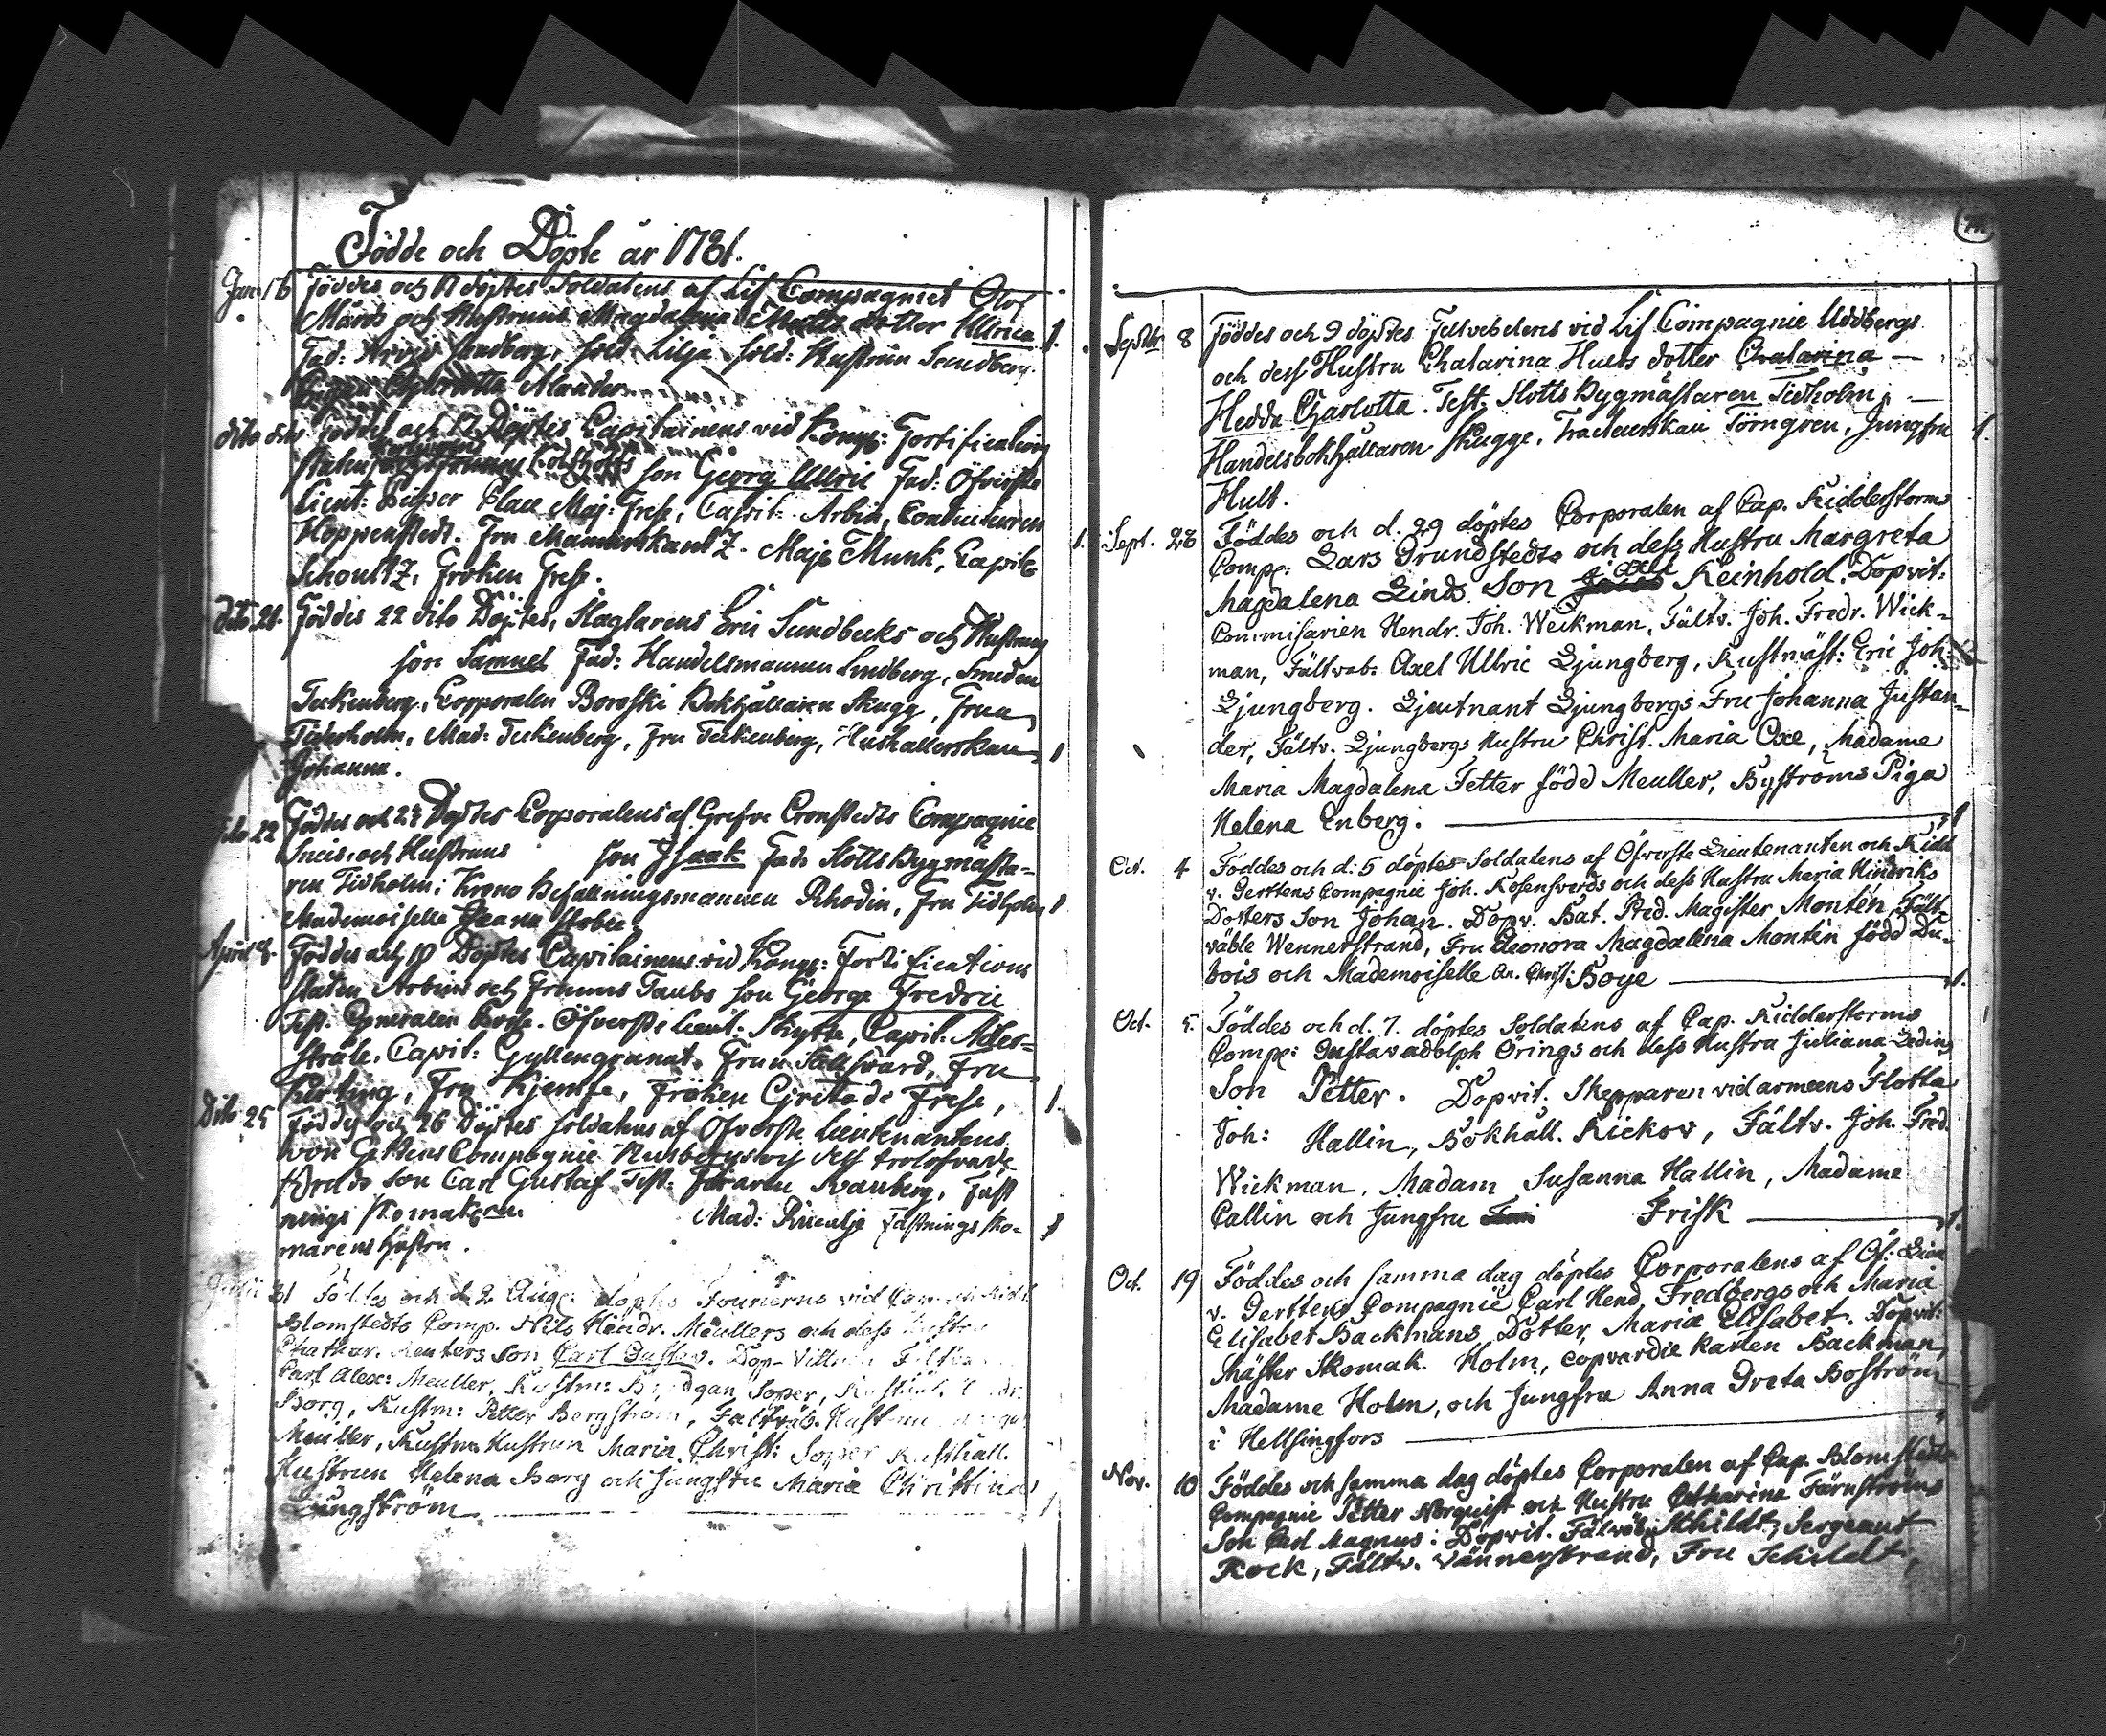 Födde och Döpte år 1781.
Jan. 16 Föddes och 17 döptes Soldatens af Lif Compagniet Olof
Mårds och Hustruns Magdalena Matts dotter Ullrica 1.
Fad: Sundberg, Sold: Lilja Sold: Hustrun Sundberg
Charlotta Alander
dito dito Föddes och 17 Döptes Capitainens vid Kongs: Fortifications
staten son Georg Ullric Fad: Öfverste
Lieut: Place Maj: Frese, Capit: Arbin, Conducteuren
Hoppenstedt. Fru Manderskantz. Maj: Munk, Capit:
Schoultz, Fröken Frese. 1.
dito 21. Föddes 22 dito Döptes, Slagtarens Eric Sundbecks och Hustruns
son Samuel Fad: Handelsmannen Lindberg, Smeden
Teckenberg, Corporalen Boroski Bokhållaren Skugg, Fruu
Tidesholm, Mad: Teckenberg, Fru Teckenberg, Hushållerskan 1
Johanna.
dito 22 Föddes och 24 Döptes Corporalens af Grefve Cronstedts Compagnie
och Hustruns son Isaak Fad: Slotts Bygmästa-
ren Tidholm; Krono Befallningsmannen Rhodin, Fru Tidholm 1
Mademoiselle
April 8. Föddes och Döptes Capitainens vid Kongs: Fortifications
staten Arbins och Fruuns Taubs son George Fredric
Test. Generalen Öfverste Lieut: Skytte, Capit: Adler-
stråle, Capit: Gyllengranat, Fruu Fru
Fru Kjempe, Fröken Greta de Frese, 1.
Dito 25 Föddes och 26 Döptes Soldatens af Öfverste Lieutenantens
von Gerttens Compagnie
son Carl Gustaf Test: Svanberg, Fäst
nings skomakren Mad: Fästnings sko- 1
makrens hustru.
Julii 31 Föddes och d. 2 Aug: döptes Fourierns vid
Blomstedts Comp. Nils Hendr. Meullers och dess Hustru
Chathar. Reuters Son Carl Gustav. Dop-Vittnen
Carl Alex: Meuller, Soper,
Borg, Rustm: Petter Bergström, Fältväb. Hustrun
Meuller, Rustm. Hustrun Maria Christ: Soper Rusthåll.
Hustrun Helena Borg och Jungfru Maria Christina
Liungström 1
Septbr 8 Föddes och 9 döptes Feltvebelens vid Lif Compagnie Uddbergs
och dess Hustru Chatarina Hults dotter Chatarina
Hedda Charlotta. Test: Slotts Bygmästaren Tidholm,
Handelsbokhållaren Skugge, Tracteurskan Törngren, Jungfru 1.
Hult.
Sept. 28 Föddes och d. 29 döptes Corporalen af Cap. Ridderstorms
Comp: Lars Grundstedts och dess Hustru Margreta
Magdalena Linds Son Axel Reinhold. Dopvit:
Commisarien Hendr. Joh. Weckman, Fältv. Joh. Fredr. Wick-
man, Fältvab: Axel Ullric Ljungberg, Rustmäst: Eric Joh:
Ljungberg. Ljeutnant Ljungbergs Fru Johanna Justan-
der, Fältv. Ljungbergs Hustru Christ. Maria Oxe, Madame
Maria Magdalena Tetter född Meuller, Byströms Piga
Helena Enberg. 1
Oct. 4 Föddes och d: 5 döptes Soldatens af Öfverste Lieutenanten och Ridd
v. Gerttens Compagnie Joh. Rosensverds och dess Hustru Maria Hindriks
Dotters Son Johan. Dopv. Bat. Pred. Magister Montén, Fält-
väble Wennerstrand, Fru Eleonora Magdalena Montén född Du-
bois och Mademoiselle An. Christ: Boye 1.
Oct. 5. Föddes och d. 7. döptes Soldatens af Cap. Ridderstorms
Comp: Gustav Adolph Örings och dess Hustru Juliana Ledins
Son Petter. Dopvit. Skepparen vid armeens Flotta
Joh: Hallin, Bokhåll. Rickov, Fältv. Joh. Fred.
Wickman, Madam Susanna Hallin, Madame
Callin och Jungfru Frisk 1.
Oct. 19 Föddes och samma dag döptes Corporalens af Öf: Lieu
v. Gerttens Compagnie Carl Hend. Fredbergs och Maria
Elisabet Backmans Dotter, Maria Elisabet. Dopvit:
Mäster Skomak. Holm, Copvardie Karlen Backman,
Madame Holm, och Jungfru Anna Greta Boström
i Hellsingfors
Nov. 10 Föddes och samma dag döptes Corporalen af Cap. Blomstedts
Compagnie Petter Norquist och Hustru Catharina Färnströms
Son Carl Magnus: Dopvit. Fältväb. Schildt, Sergeant
Rock, Fältv. Vännerstrand, Fru Schildt,